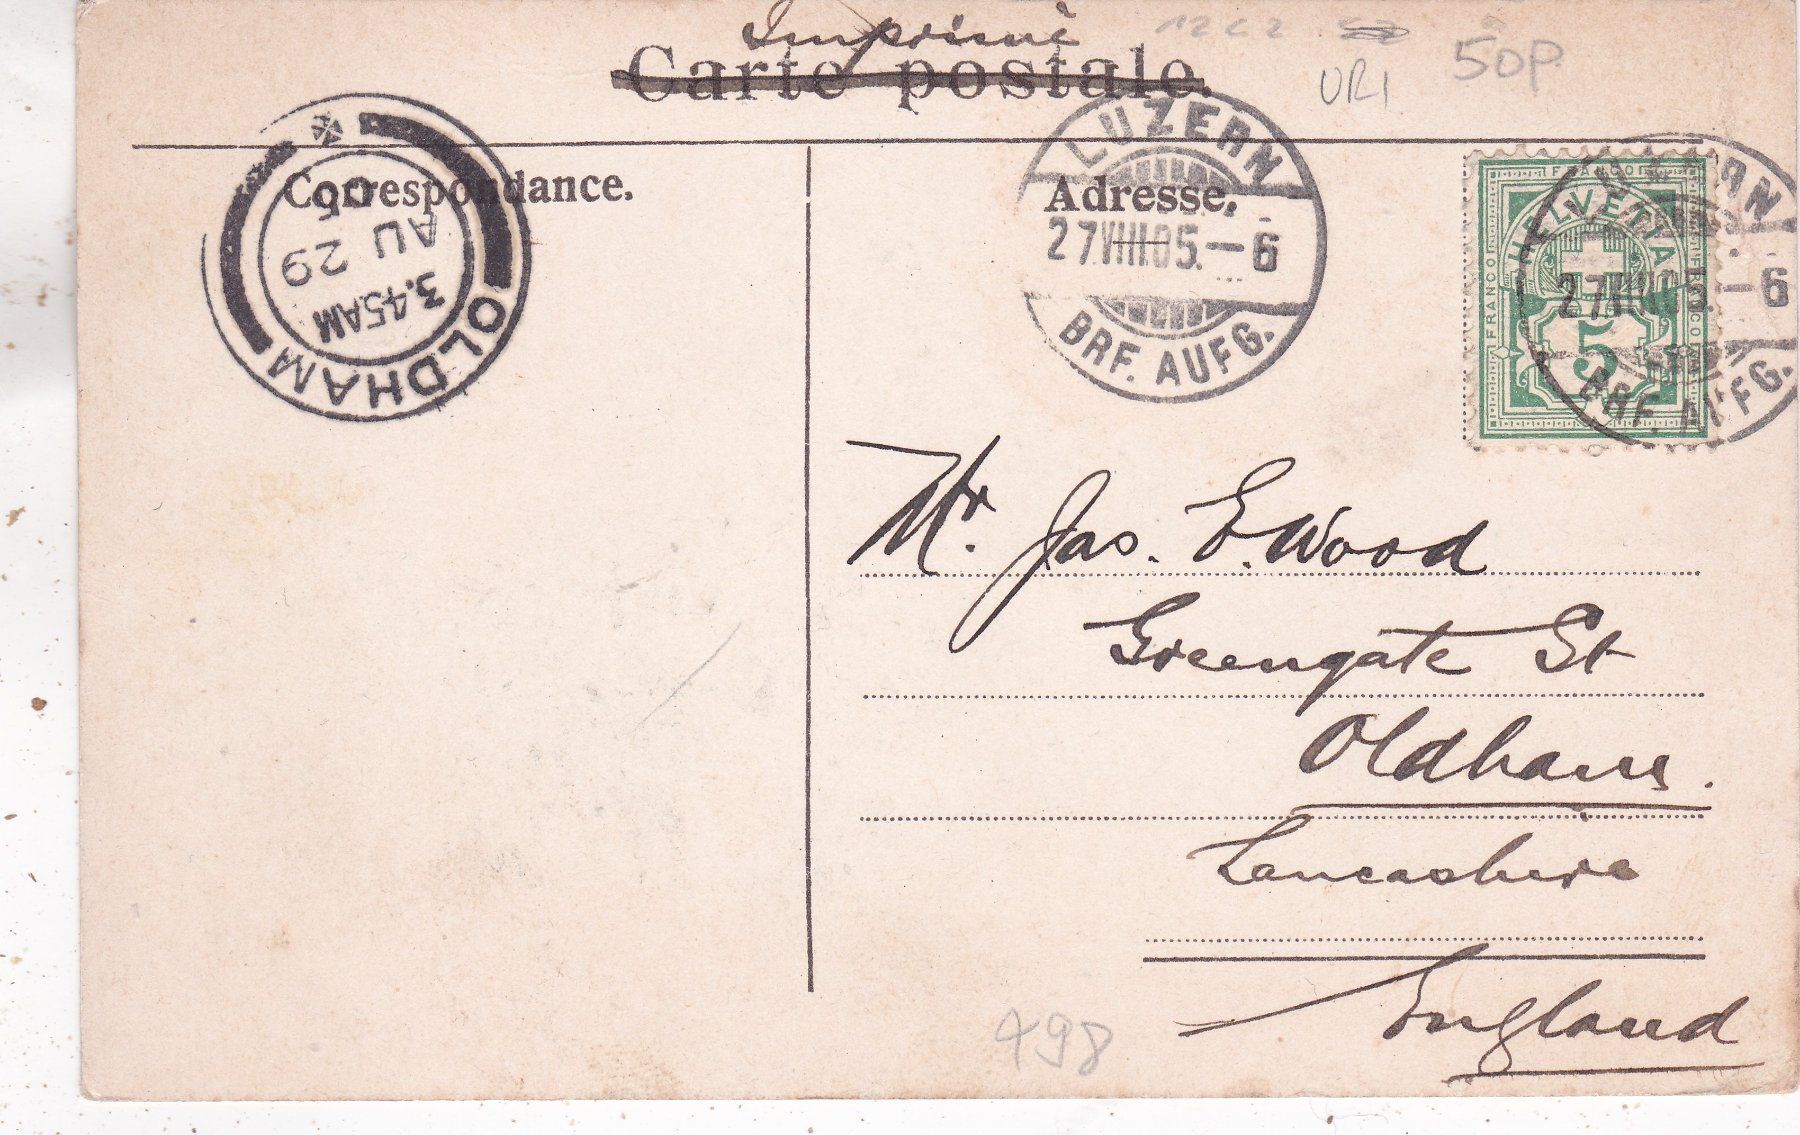 Imprimé
Carte postale.
URI
50P
Correspondance.
Adresse.
OLDHAM
3.45AM
AU 29
05
LUZERN
27.VIII.05.—6
BRF. AUFG.
FRANCO
HELVETIA
FRANCO
FRANCO
5
LUZERN
27.VIII.05.—6
BRF. AUFG.
Mr. Jas. E. Wood
Greengate St
Oldham.
Lancashire
England
498